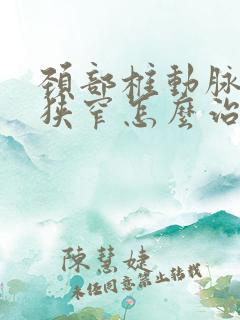 頚部椎動脉
狭窄怎麽治
陳慧婕
未经同意禁止转载